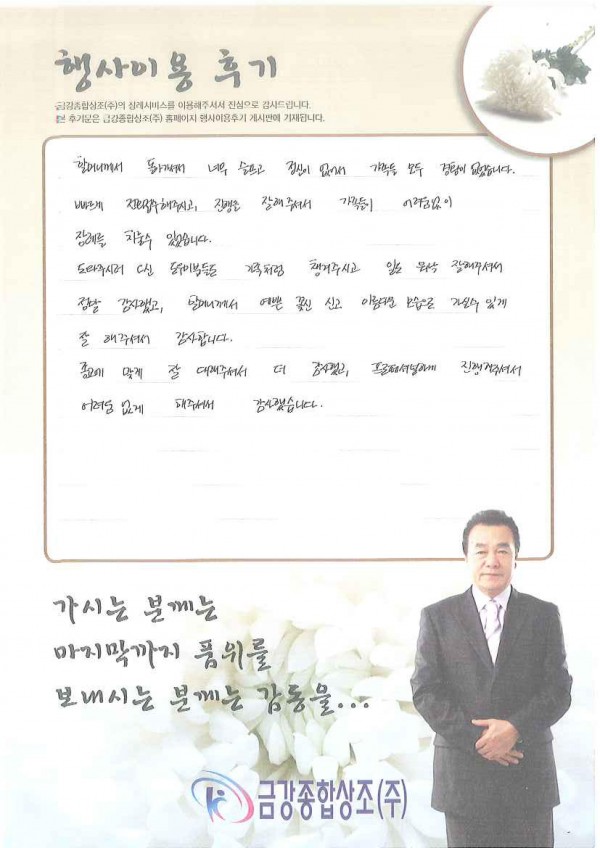 행사이용 후기
금강종합상조(주)의 장례서비스를 이용해주셔서 진심으로 감사드립니다.
본 후기문은 금강종합상조(주) 홈페이지 행사이용후기 게시판에 기재됩니다.
할머니께서 돌아가셔서 너무 슬프고 정신이 없어서 가족들 모두 경황이 없었습니다.
빠르게 전화접수해주시고, 진행을 잘해주셔서 가족들이 어려움없이
장례를 치룰수 있었습니다.
도와주시러 오신 도우미분들도 가족처럼 챙겨주시고 일도 워낙 잘해주셔서
정말 감사했고, 할머니께서 예쁜 꽃신 신고 아름다운 모습으로 가실수 있게
잘 해주셔서 감사합니다.
종교에 맞게 잘 대해주셔서 더 감사했고, 프로페셔널하게 진행해주셔서
어려움 없게 해주셔서 감사했습니다.
가시는 분께는
마지막까지 품위를
보내시는 분께는 감동을...
금강종합상조(주)